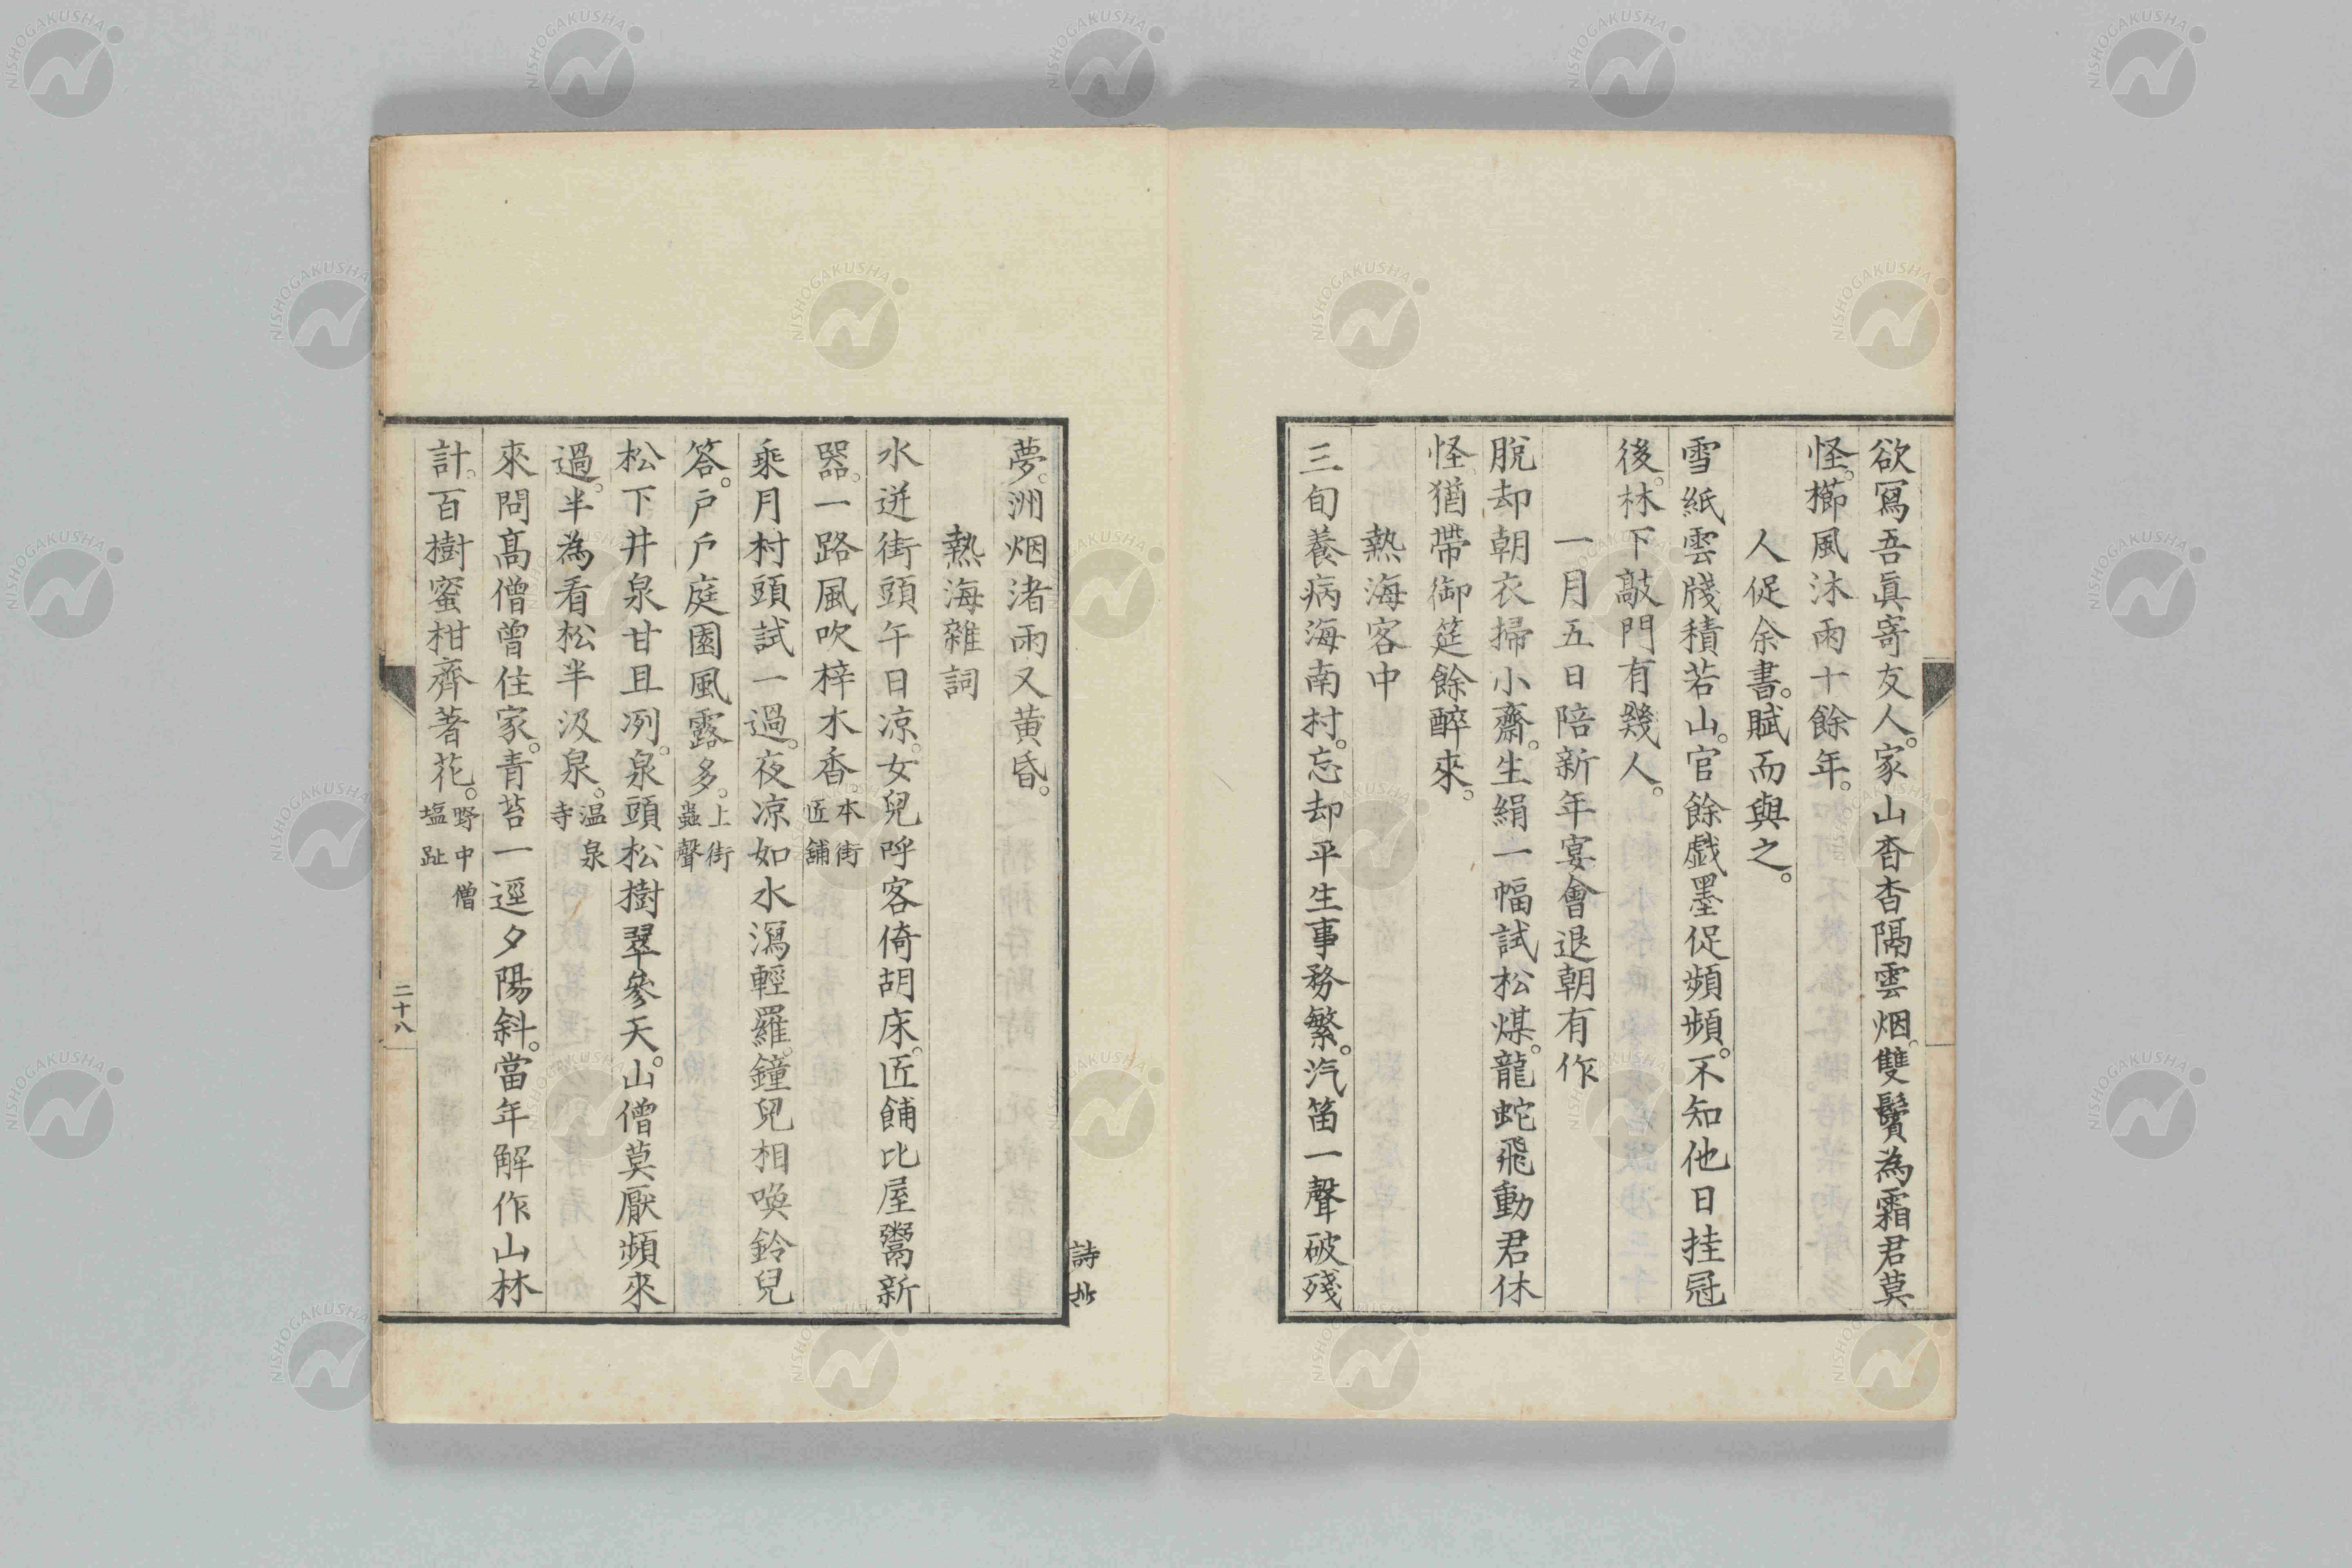 欲寫吾眞寄友人。家山杳杳隔雲烟。雙鬢為霜君莫
怪。櫛風沐雨十餘年。
人促余書。賦而與之。
雪紙雲牋積若山。官餘戯墨促頻頻。不知他日挂冠
後。林下敲門有幾人。
一月五日陪新年宴會退朝有作
脫却朝衣掃小齋。生絹一幅試松煤。龍蛇飛動君休
怪。猶帶御筵餘醉來。
熱海客中
三旬養病海南村。忘却平生事務繁。汽笛一聲破殘
夢。洲烟渚雨又黃昏。
熱海雜詞
水迸街頭午日凉。女兒呼客倚胡床。匠餔比屋鬻新
器。一路風吹梓木香。本街匠舖
乘月村頭試一過。夜凉如水瀉輕羅。鐘兒相喚鈴兒
答。戶戶庭園風露多。上街蟲聲
松下井泉甘且冽。泉頭松樹翠參天。山僧莫厭頻來
過。半為看松半汲泉。温泉寺
來問高僧曾住家。青苔一逕夕陽斜。當年解作山林
計。百樹蜜柑齊著花。野中僧塩趾
詩抄
二十八
NISHOGAKUSHA